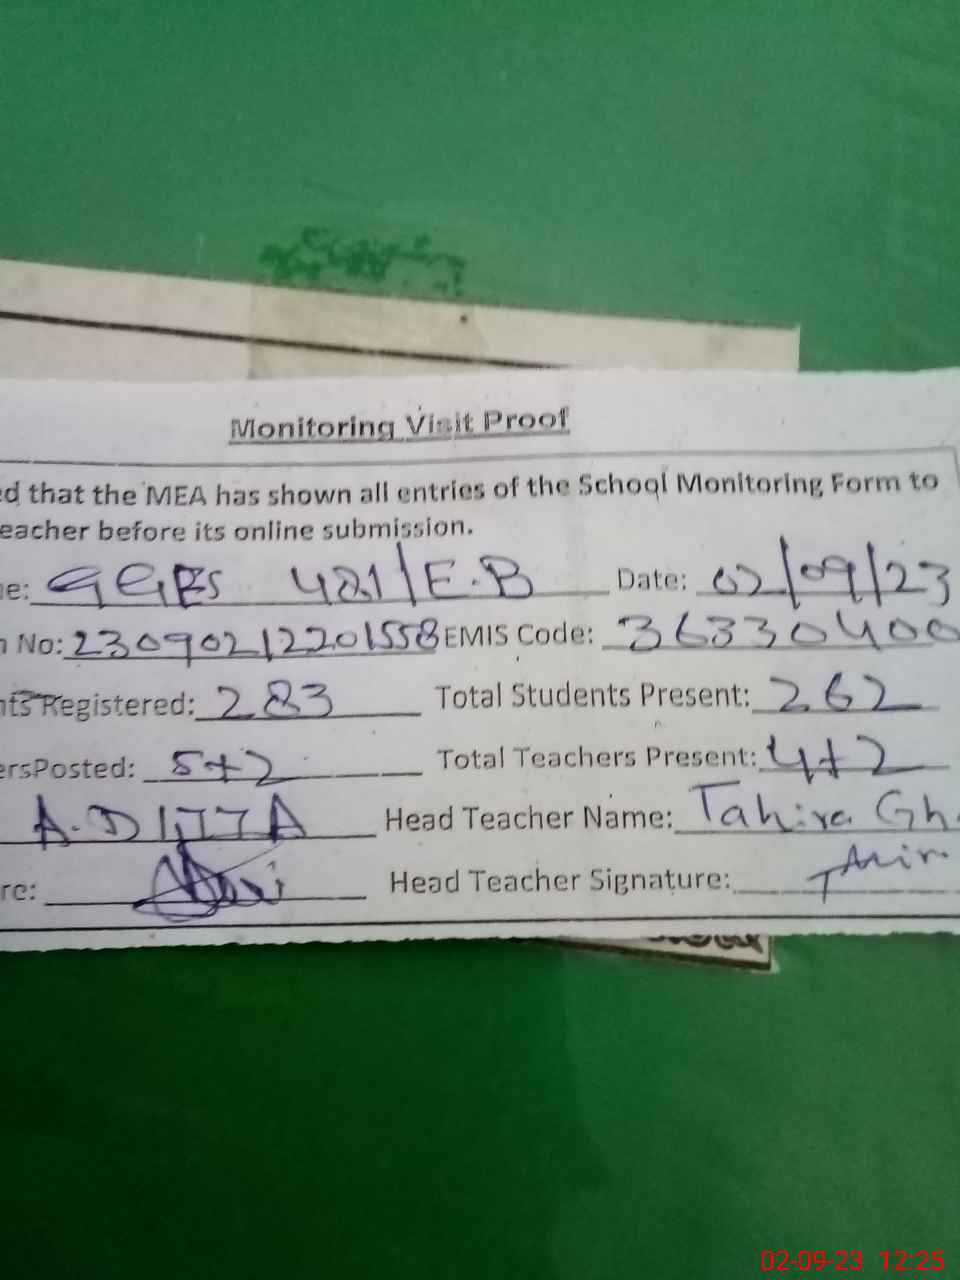 Monitoring Visit Proof
ed that the MEA has shown all entries of the School Monitoring Form to
eacher before its online submission.
e: GGES 481/E.B Date: 02/09/23
No: 230902122201558 EMIS Code: 36330400
nts Registered: 283 Total Students Present: 262
ersPosted: 5+2 Total Teachers Present: 4+2
A.DITTA Head Teacher Name: Tahira Gh
re: Head Teacher Signature:
02-09-23 12:25